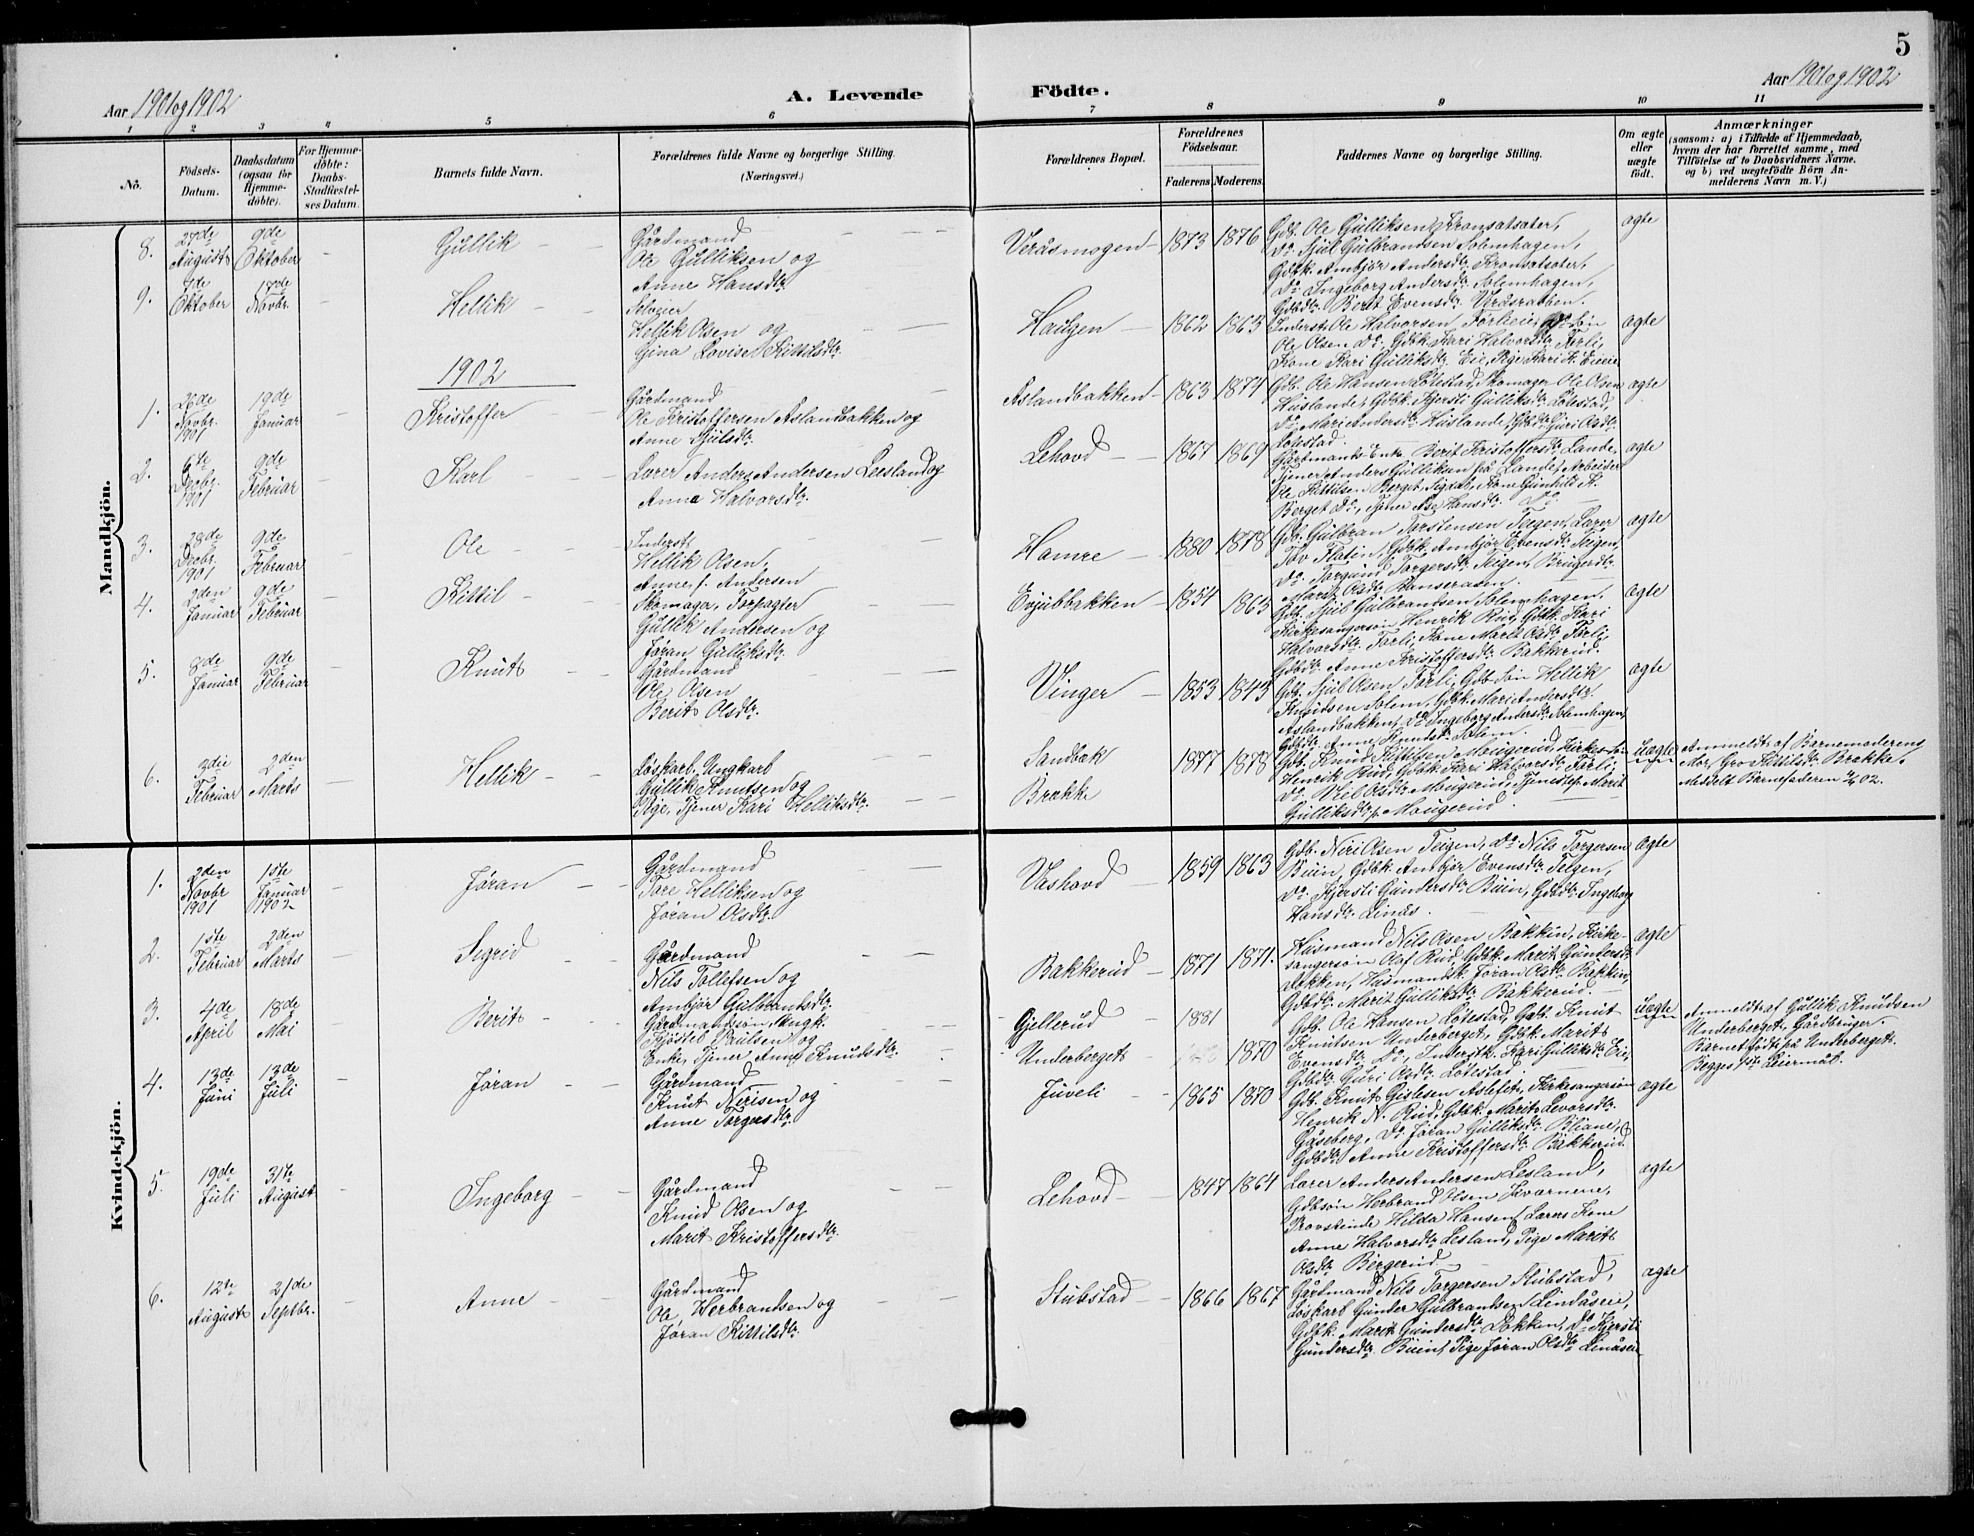 5
Aar 1901 og 1902
A. Levende Födte.
Aar 1901 og 1902
1 2 3 4 5 6 7 8 9 10 11
No.
Födsels-Datum.
Daabsdatum (ogsaa for Hjemmedöbte).
For Hjemmedöbte: Daabs-Stadfæstelses Datum.
Barnets fulde Navn.
Forældrenes fulde Navne og borgerlige Stilling. (Næringsvei.)
Forældrenes Bopæl.
Forældrenes Födselsaar.
Faderens. Moderens.
Faddernes Navne og borgerlige Stilling.
Om ægte eller uægte födt.
Anmærkninger
(saasom: a) i Tilfælde af Hjemmedaab, hvem der har forrettet samme, med Tilföielse af to Daabsvidners Navne, og b) ved uægtefödte Börn Anmelderens Navn m. V.)
Mandkjön.
8. 27de August 9de Oktober - Gullik
Gårdmand
Ole Gulliksen og
Anne Hansdtr.
Veråsmogen 1873 1876
Gdb. Ole Gulliksen Fronsatsater,
Do Sjul Gulbrandsen Solemhagen,
Gdbk. Ambjör Andersdtr. Fronsatsater,
Do Ingeborg Andersdtr. Solemhagen,
Gdbdtr. Berit Evensdtr. Veråsrabben.
ægte
9. Oktober 17de Novbr. - Hellik
Selveier
Hellik Olsen og
Gina Lovise Kittilsdtr.
Haugen 1862 1863
Inderst Ole Halvorsen Förlieie, Do Sön
Ole Olsen Do, Gdbk. Kari Halvorsdtr. Förli,
Kone Kari Gulliksdtr. Eie, Pige Kari H. Eneie
ægte
1902
1. 26de Novbr. 1901 19de Januar - Kristoffer
Gårdmand
Ole Kristoffersen Aslandbakken og
Anne Sjulsdtr.
Aslandbakken 1863 1874
Gdb. Ole Hansen Lölestad, Skomager Ole Olsen
Huslande, Gdbk. Kjersti Gulliksdtr. Lölestad,
Do Mari Andersdtr. Huslande, Gdbdtr. Guri Olsdtr.
Lölestad.
ægte
2. 6te Decbr. 1901 9de Februar - Karl
Lærer Anders Andersen Leesland og
Anna Halvorsdtr.
Lehovd 1867 1869
Gårdmands Enke Berit Kristoffersdtr. Lande,
Tjener Anders Gulliksen på Lande, Arbeider
Ole Kittilsen Berget, Sigdal, Kone Gunhild K.
Berget Do, Tjener Åse Hansdtr. Do.
ægte
3. 28de Decbr. 1901 9de Februar - Ole
Inderst
Hellik Olsen,
Anne f. Andersen
Hamre 1880 1878
Gdb. Gulbran Torstensen Teigen, Lærer
Tov Flatin, Gdbk. Ambjör Evensdtr. Teigen,
Do Torgund Torgersdtr. Teigen, Brugerdtr.
Marit Olsdtr. Hanseraaen.
ægte
4. 2den Januar 9de Februar - Kittil
Skomager, Forpagter
Gullik Andersen og
Jöran Gulliksdtr.
Evjubbakken 1854 1865
Gdb. Sjul Gulbrandsen Solemhagen,
Kirkesangersön Henrik Rud, Gdbk. Kari
Halvorsdtr. Förli, Kone Marit Olsdtr. Förli,
Gdbdtr. Anne Kristoffersdtr. Bakkerud.
ægte
5. 8de Januar 9de Februar - Knut
Gårdmand
Ole Olsen
Berit Olsdtr.
Vinger 1853 1843
Gdb. Sjul Olsen Förli, Gdb. Sön Hellik
Knudsen Solem, Gdbk. Mari Andersdtr.
Aslandbakken, Do Ingeborg Andersdtr. Solemhagen,
Gdbdtr. Anne Knudsdtr. Solem.
ægte
6. 3die Februar 2den Marts - Hellik
Löskarl, Ungkarl
Gullik Knutsen og
Pige, Tjener Kari Helliksdtr.
Sandbæk
Brække
1877 1878
Gdb. Knud Kittilsen Mougerud, Kirkes. Sön
Henrik Rud, Gdbk. Kari Halvorsdtr. Förli,
Do Sibil Olsdtr. Mougerud, Tjenestep. Marit
Gulliksdtr. p. Mougerud.
uægte
Anmeldt af Barnemoderens
Mor, Gro Kittilsdtr. Brække.
Meddelt Barnefaderen 02.
Kvindekjön.
1. 2den Novbr 1901 1ste Januar 1902 - Jöran
Gårdmand
Tore Helliksen og
Jöran Olsdtr.
Våshovd 1859 1863
Gdb. Neri Olsen Teigen, Do Nils Torgersen
Buin, Gdbk. Ambjör Evensdtr. Teigen,
Do Kjersti Gundersdtr. Buin, Gdbdtr. Ingeborg
Hansdtr. Linås.
ægte
2. 1ste Februar 2den Marts - Sigrid
Gårdmand
Nils Tollefsen og
Ambjör Gulbrandsdtr.
Bakkerud 1871 1871.
Husmand Nils Olsen Bakkin, Kirke-
sangersön Olaf Rud, Gdbk. Marit Gundersdtr.
Dokken, Husmandsk. Jöran Olsdtr. Bakkin,
Gdbdtr. Marit Gulliksdtr. Bakkerud.
ægte
3. 4de April 18de Mai - Berit
Gårdmandssön, Ungk.
Kjöstel Paulsen og
Enke, Tjener Anne Knudsdtr.
Gjellerud
Underberget
1881
1870
Gdb. Ole Hansen Lölestad, Gdb. Knut
Knutsen Underberget, Gdbk. Marit
Evensdtr. Do, Inderstk. Kari Gulliksdtr. Eie,
Gdbdtr. Guri Olsdtr. Lölestad
uægte
Anmeldt af Gullik Knudsen
Underberget, Gårdbruger.
Barnet födt på Underberget.
Begges 1ste Leiermål.
4. 13de Juni 13de Juli - Jöran
Gårdmand
Knut Nerisen og
Anne Torgersdtr.
Juveli 1865 1870
Gdb. Knut Gislesen Aslefet, Kirkesangersön
Henrik N. Rud, Gdbk. Marit Levorsdtr.
Gåseberg, Do Jöran Gulliksdtr. Bliane,
Gdbdtr. Anne Kristoffersdtr. Bakkerud
ægte
5. 19de Juli 31te August - Ingeborg
Gårdmand
Knud Olsen og
Marit Kristoffersdtr.
Lehovd 1847 1864
Lærer Anders Andersen Lesland,
Gdbsön Herbrand Olsen Juvarnene,
Provstinde Hilda Hansen, Lærers Kone
Anne Halvorsdtr. Lesland, Pige Marit
Olsdtr. Bergerud
ægte
6. 12te August 21de Septbr. - Anne
Gårdmand
Ole Herbrandsen og
Jöran Kittilsdtr.
Stubstad 1866 1867
Gårdmand Nils Torgersen Stubstad,
Löskarl Gunder Gulbrandsen Lindåseie,
Gdbk. Marit Gundersdtr. Dokken, Do Kjersti
Gundersdtr. Buin, Pige Jöran Olsdtr. Linåseie
ægte